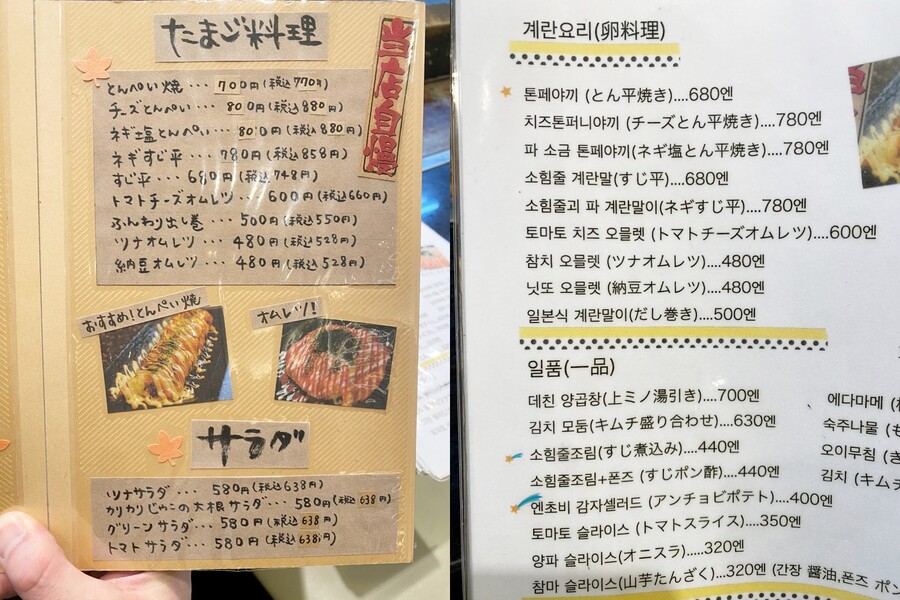 たまご料理
当店自慢
とんぺい焼・・・700円(税込770円)
チーズとんぺい・・・800円(税込880円)
ネギ塩とんぺい・・・800円(税込880円)
ネギすじ平・・・780円(税込858円)
すじ平・・・680円(税込748円)
トマトチーズオムレツ・・・600円(税込660円)
ふんわり出し巻・・・500円(税込550円)
ツナオムレツ・・・480円(税込528円)
納豆オムレツ・・・480円(税込528円)
おすすめ!とんぺい焼
オムレツ!
サラダ
ツナサラダ・・・580円(税込638円)
カリカリじゃこの大根サラダ・・・580円(税込638円)
グリーンサラダ・・・580円(税込638円)
トマトサラダ・・・580円(税込638円)
계란요리(卵料理)
톤페야끼 (とん平焼き)....680엔
치즈톤퍼니야끼 (チーズとん平焼き)....780엔
파 소금 톤페야끼(ネギ塩とん平焼き)....780엔
소힘줄 계란말(すじ平)....680엔
소힘줄괴 파 계란말이(ネギすじ平)....780엔
토마토 치즈 오믈렛 (トマトチーズオムレツ)....600엔
참치 오믈렛 (ツナオムレツ)....480엔
닛또 오믈렛 (納豆オムレツ)....480엔
일본식 계란말이(だし巻き)....500엔
일품(一品)
데친 양곱창(上ミノ湯引き)....700엔
김치 모둠(キムチ盛り合わせ)....630엔
소힘줄조림(すじ煮込み)....440엔
소힘줄조림+폰즈 (すじポン酢)....440엔
엔초비 감자셀러드 (アンチョビポテト)....400엔
토마토 슬라이스 (トマトスライス)....350엔
양파 슬라이스(オニスラ).....320엔
참마 슬라이스(山芋たんざく)...320엔 (간장 醤油,폰즈 ポン
에다마메
숙주나물 (も
오이무침 (き
김치 (キム